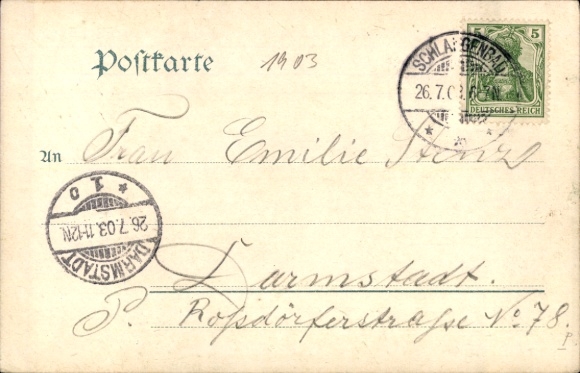 Postkarte
1903
5 5
DEUTSCHES REICH
SCHLANGENBAD
26.7.03.6-7N.
An Frau Emilie
*1 c
26.7.03.11-12N.
DARMSTADT
Darmstadt.
P. Roßdörferstraße No. 78.
P